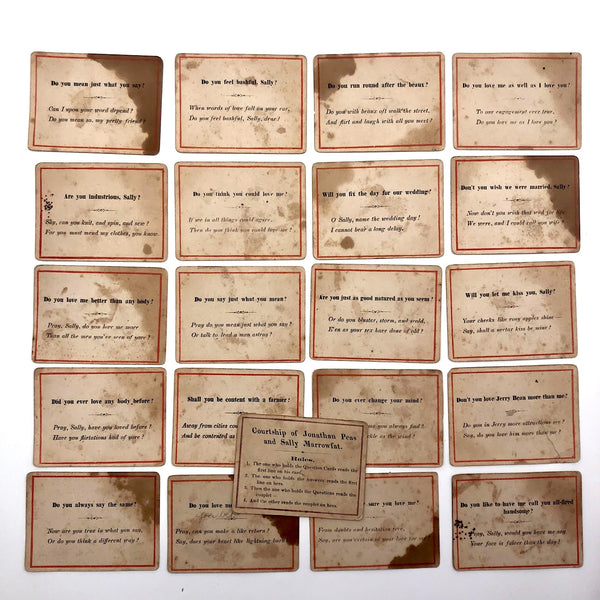 Do you mean just what you say?
Can I upon your word depend?
Do you mean so, my pretty friend?
Do you feel bashful, Sally?
When words of love fall on your ear,
Do you feel bashful, Sally, dear?
Do you run round after the beaux?
Do you with beaux oft walk the street,
And flirt and laugh with all you meet?
Do you love me as well as I love you?
To our engagement ever true,
Do you love me as I love you?
Are you industrious, Sally?
Say, can you knit, and spin, and sew?
For you must mend my clothes, you know.
Do you think you could love me?
If we in all things could agree,
Then do you think you could love me?
Will you fix the day for our wedding?
O Sally, name the wedding day!
I cannot bear a long delay.
Don't you wish we were married, Sally?
Now don't you wish that wed
We were, and I could call you wife?
Do you love me better than any body?
Pray, Sally, do you love me more
Than all the men you've seen of yore?
Do you say just what you mean?
Pray do you mean just what you say?
Or talk to lead a man astray?
Are you just as good natured as you seem?
Or do you bluster, storm, and scold,
E'en as your sex have done of old?
Will you let me kiss you, Sally?
Your cheeks like rosy apples shine—
Say, shall a nectar kiss be mine?
Did you ever love any body before?
Pray, Sally, have you loved before?
Have you flirtations had of yore?
Shall you be content with a farmer?
Away from cities
And be contented as
Do you ever change your mind?
you always find?
as the wind?
Don't you love Jerry Bean more than me?
Do you in Jerry more attractions see?
Say, do you love him more than me?
Courtship of Jonathan Peas
and Sally Marrowfat.
Rules.
1. The one who holds the Question Cards reads the
first line on his card.
2. The one who holds the Answers, reads the first
line on hers.
3. Then the one who holds the Questions reads the
couplet.
4. And the other reads the couplet on hers.
Do you always say the same?
Now are you true in what you say,
Or do you think a different way?
Do you love me
Pray, can you make a like return?
Say, does your heart like lightning burn
sure you love me?
From doubts and hesitation free,
Say, are you certain of your love for
Do you like to have me call you all-fired
handsome?
Pray, Sally, would you have me say
Your face is fairer than the day?